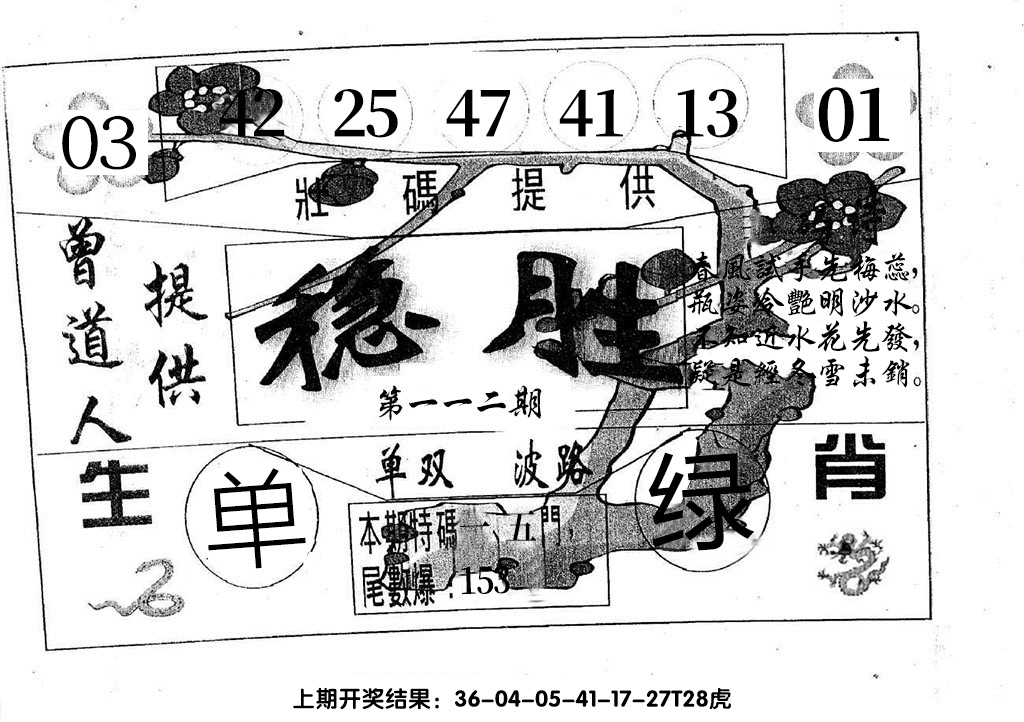 03 42 25 47 41 13 01
壯碼提供
曾道人
提供
春風試手先梅蕊，
瓶姿冷艷明沙水。
不知近水花先發，
疑是經冬雪未銷。
稳胜
第一一二期
单双 波路
生 单 绿 肖
本期特碼一、五門，
尾數爆：153
上期开奖结果：36-04-05-41-17-27T28虎